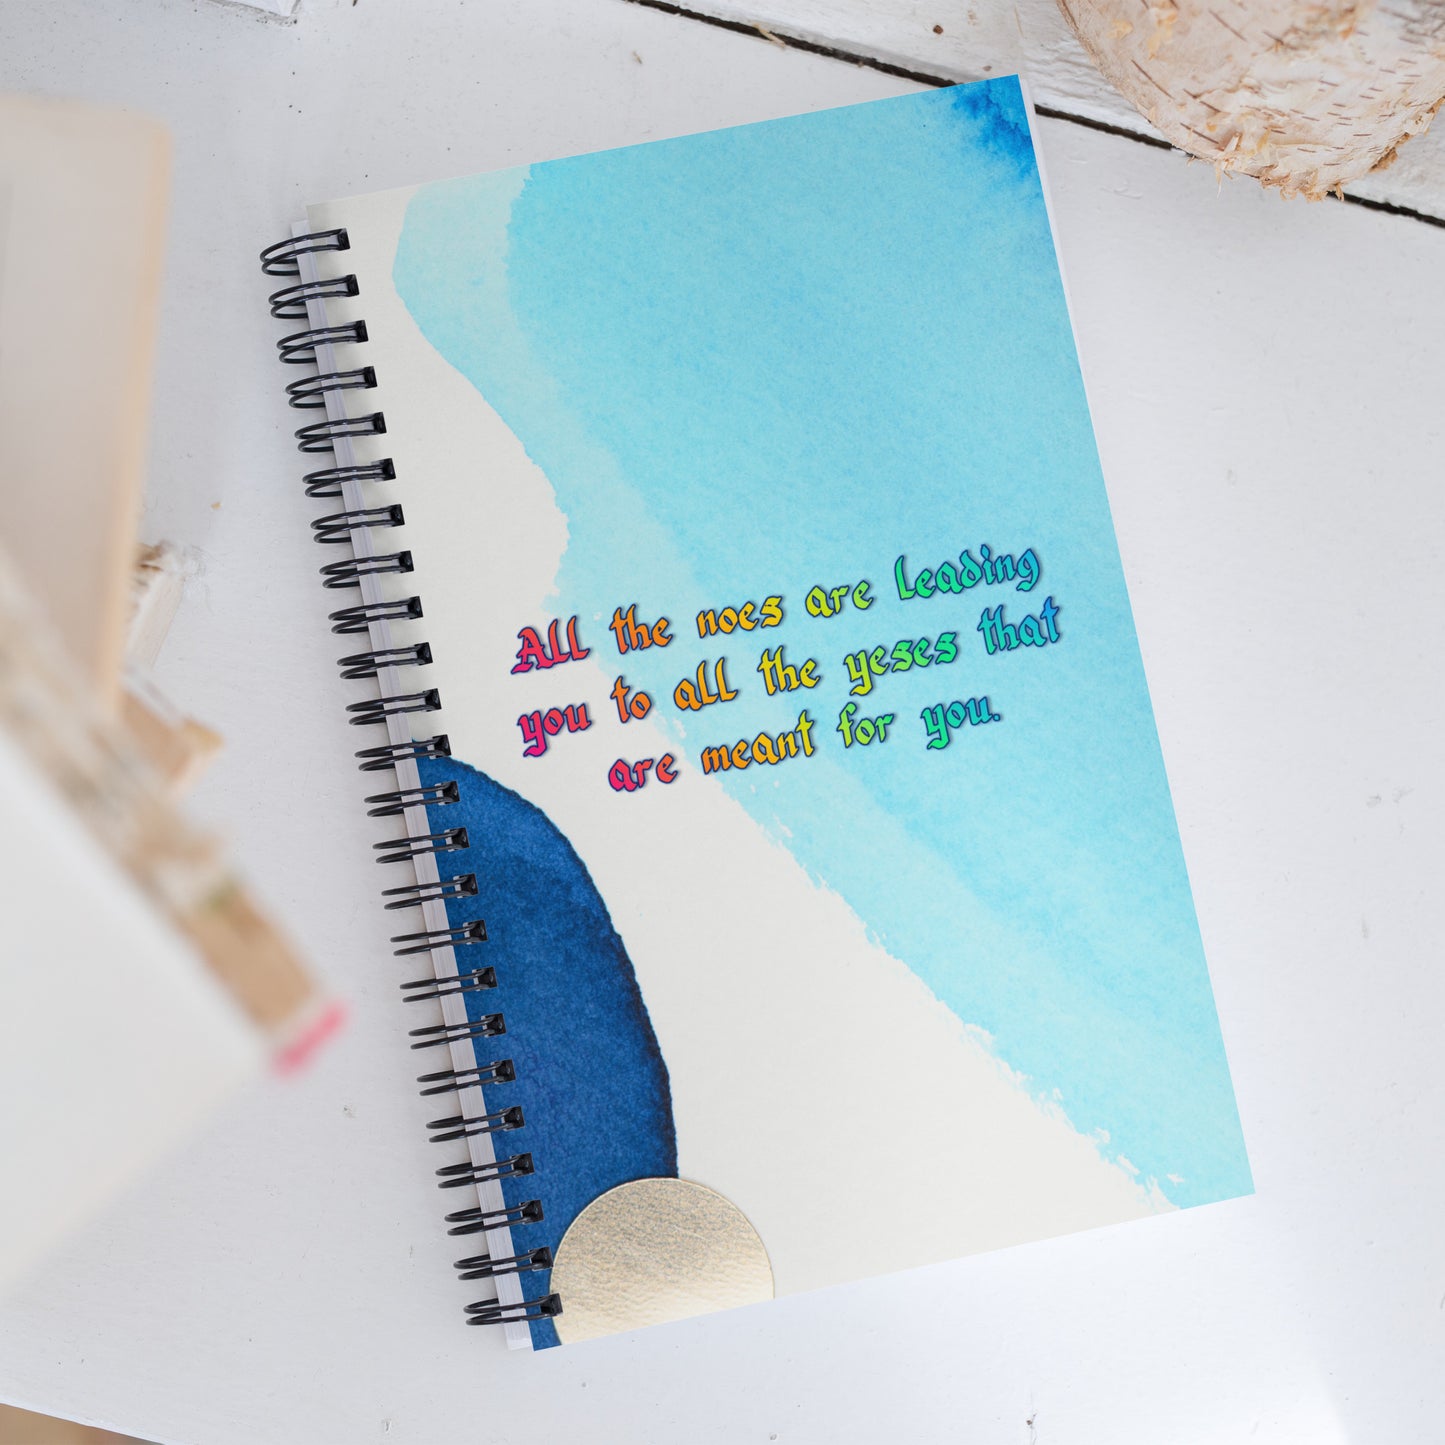 All the noes are leading
you to all the yeses that
are meant for you.